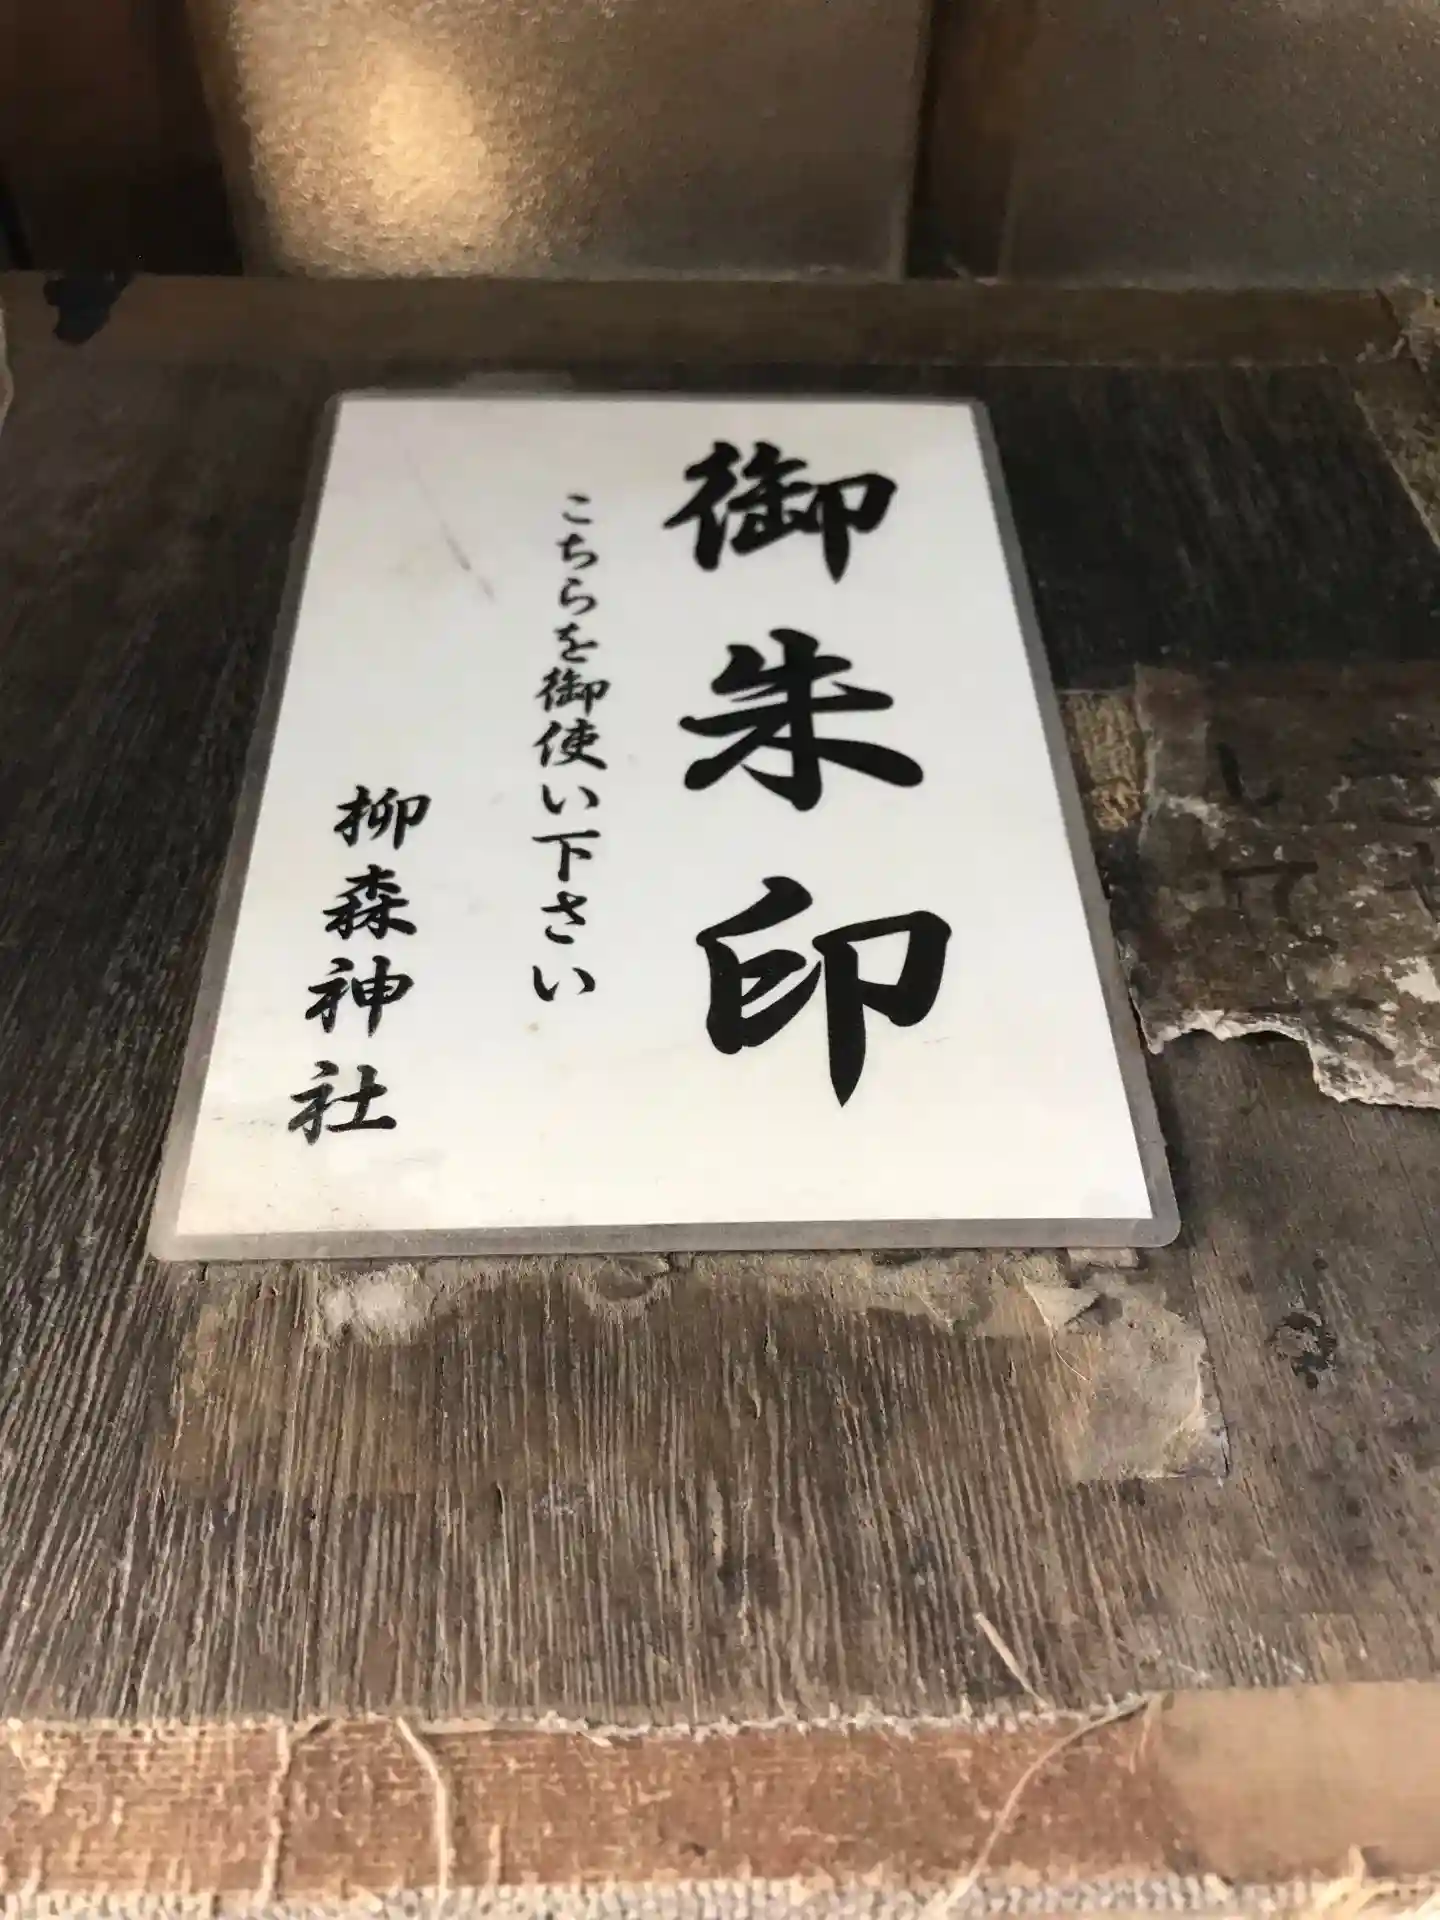 御朱印
こちらを御使い下さい
柳森神社